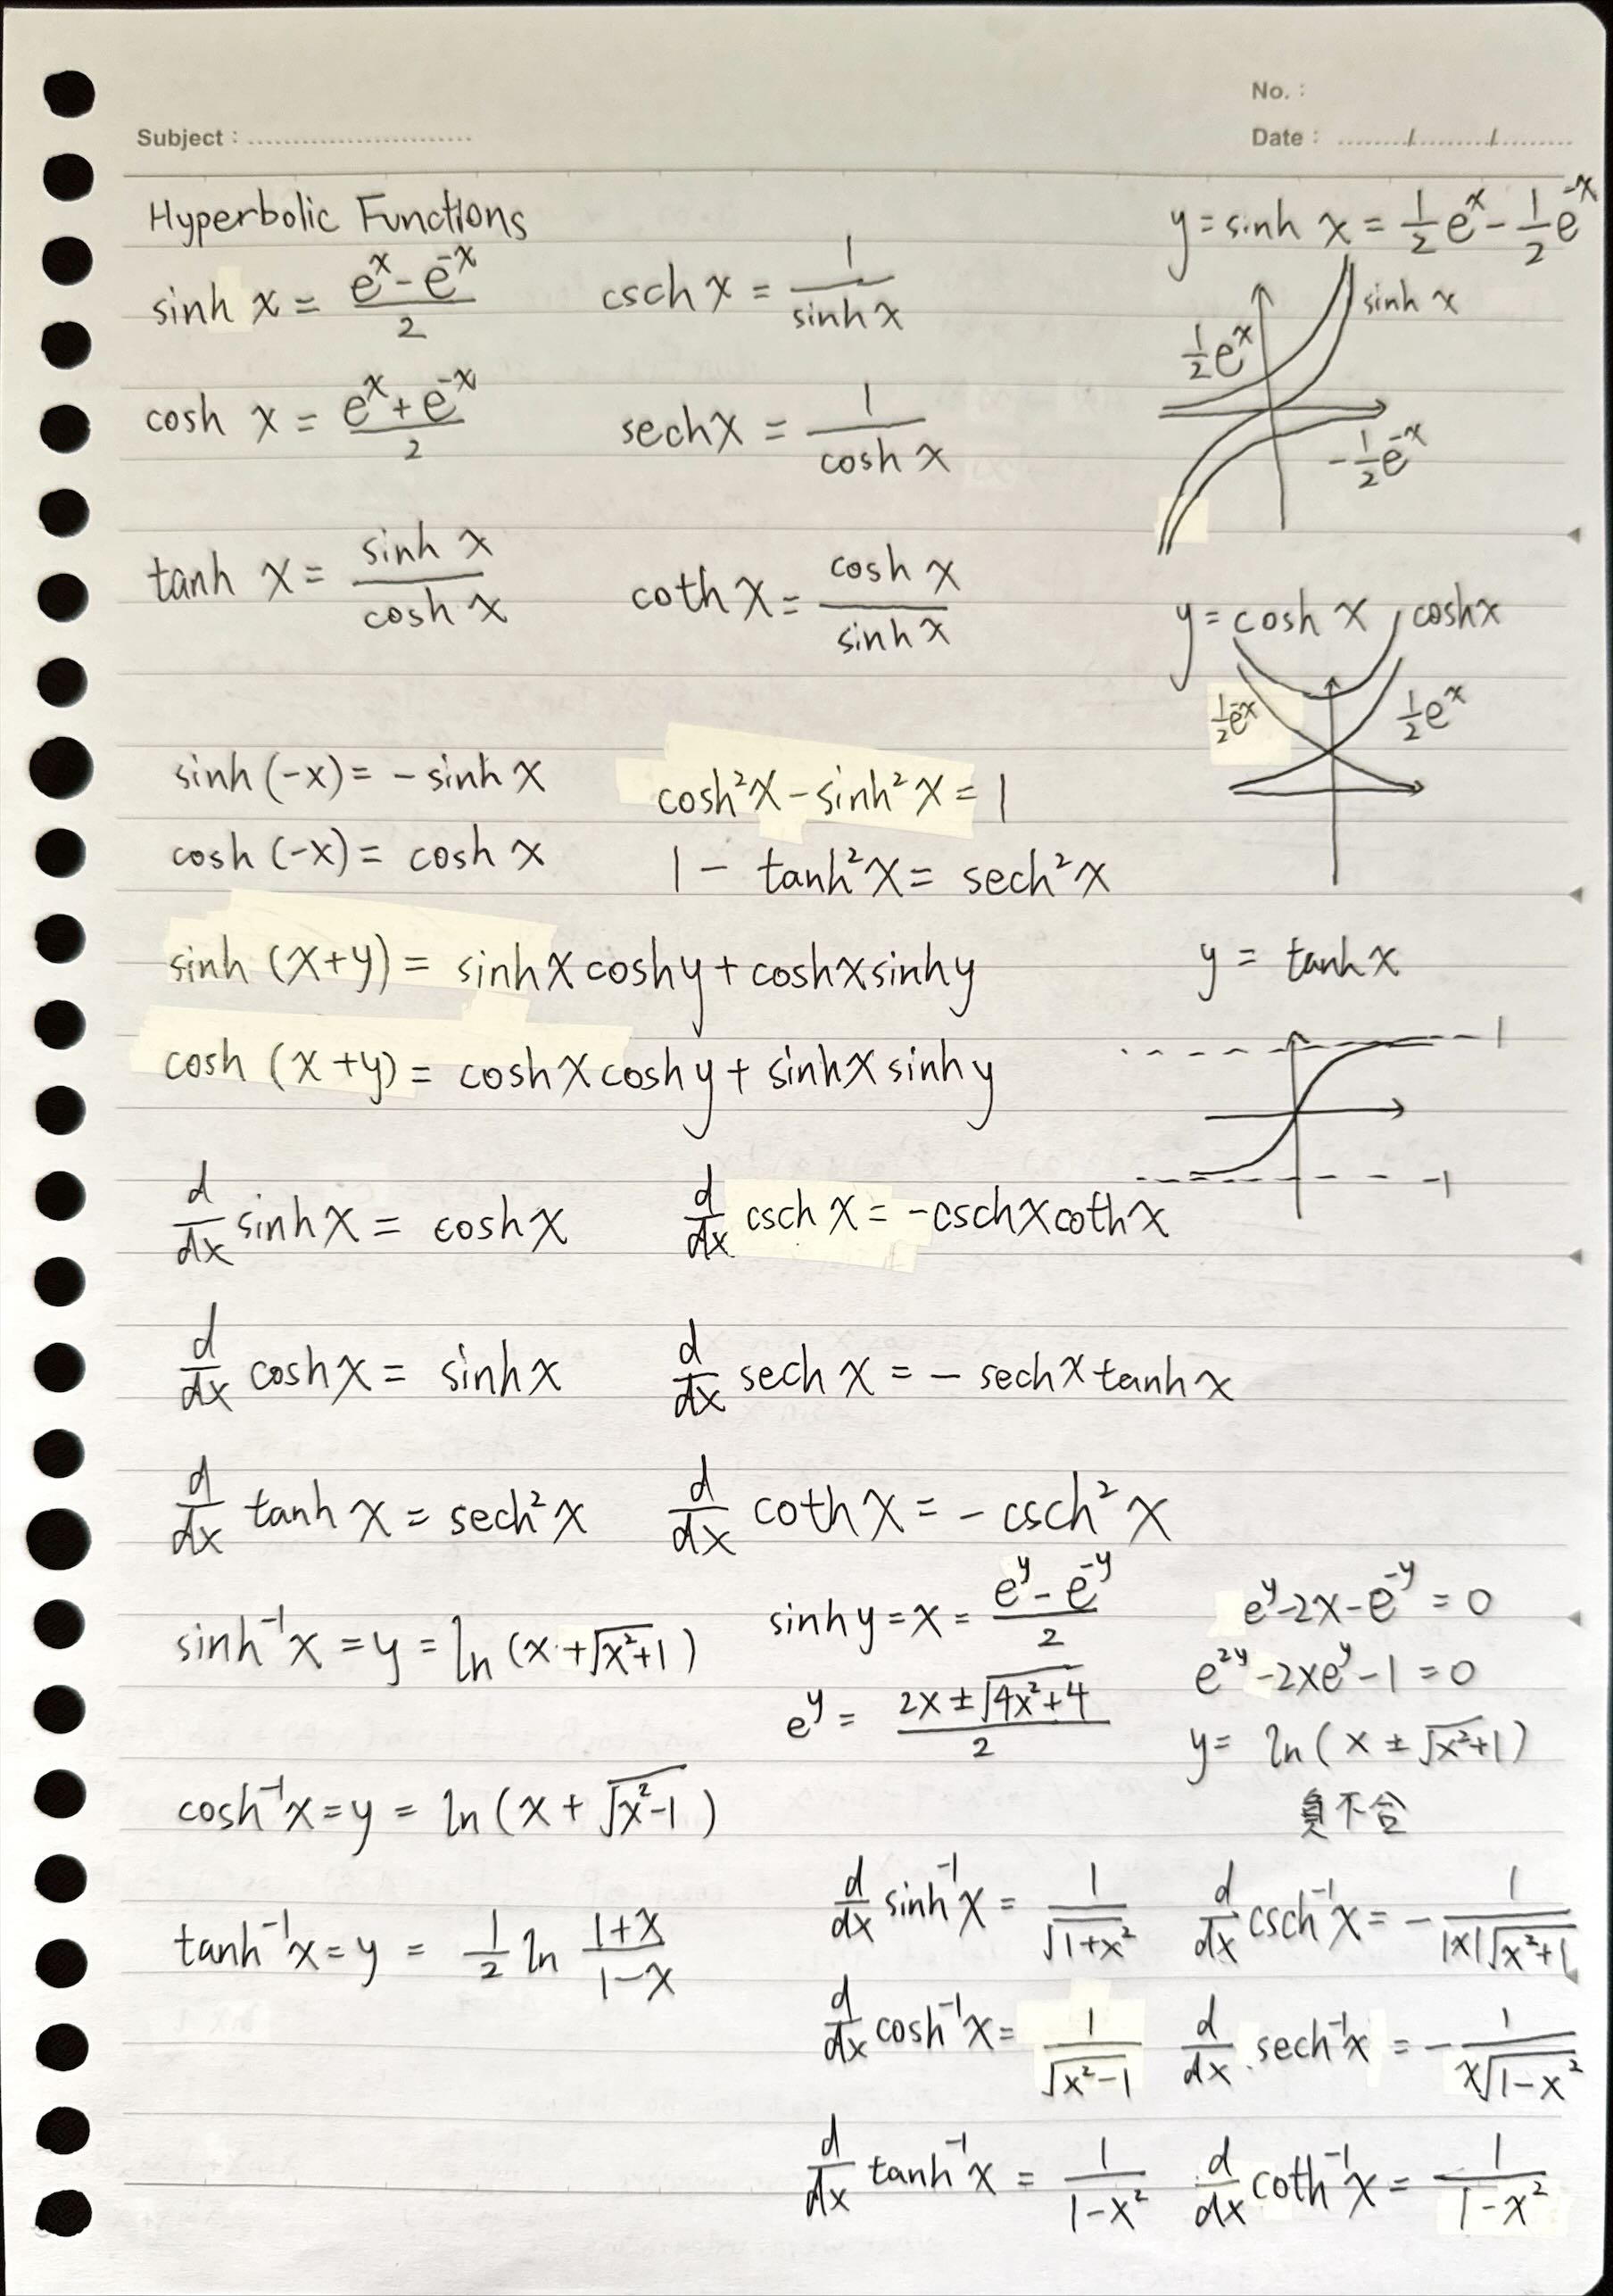 No. :
Subject :
Date : / /
Hyperbolic Functions
sinh x = (e^x - e^-x)/2
csch x = 1/(sinh x)
y = sinh x = 1/2 e^x - 1/2 e^-x
sinh x
1/2 e^x
-1/2 e^-x
cosh x = (e^x + e^-x)/2
sech x = 1/(cosh x)
tanh x = (sinh x)/(cosh x)
coth x = (cosh x)/(sinh x)
y = cosh x
cosh x
1/2 e^-x
1/2 e^x
sinh (-x) = - sinh x
cosh² x - sinh² x = 1
cosh (-x) = cosh x
1 - tanh² x = sech² x
sinh (x+y) = sinh x cosh y + cosh x sinh y
y = tanh x
1
-1
cosh (x+y) = cosh x cosh y + sinh x sinh y
d/dx sinh x = cosh x
d/dx csch x = -csch x coth x
d/dx cosh x = sinh x
d/dx sech x = - sech x tanh x
d/dx tanh x = sech² x
d/dx coth x = - csch² x
sinh⁻¹ x = y = ln (x + √(x²+1))
sinh y = x = (e^y - e^-y)/2
e^y - 2x - e^-y = 0
e^2y - 2xe^y - 1 = 0
e^y = (2x ± √(4x²+4))/2
y = ln (x ± √(x²+1))
負不合
cosh⁻¹ x = y = ln (x + √(x²-1))
tanh⁻¹ x = y = 1/2 ln (1+x)/(1-x)
d/dx sinh⁻¹ x = 1/√(1+x²)
d/dx csch⁻¹ x = - 1/(|x|√(x²+1))
d/dx cosh⁻¹ x = 1/√(x²-1)
d/dx sech⁻¹ x = - 1/(x√(1-x²))
d/dx tanh⁻¹ x = 1/(1-x²)
d/dx coth⁻¹ x = 1/(1-x²)